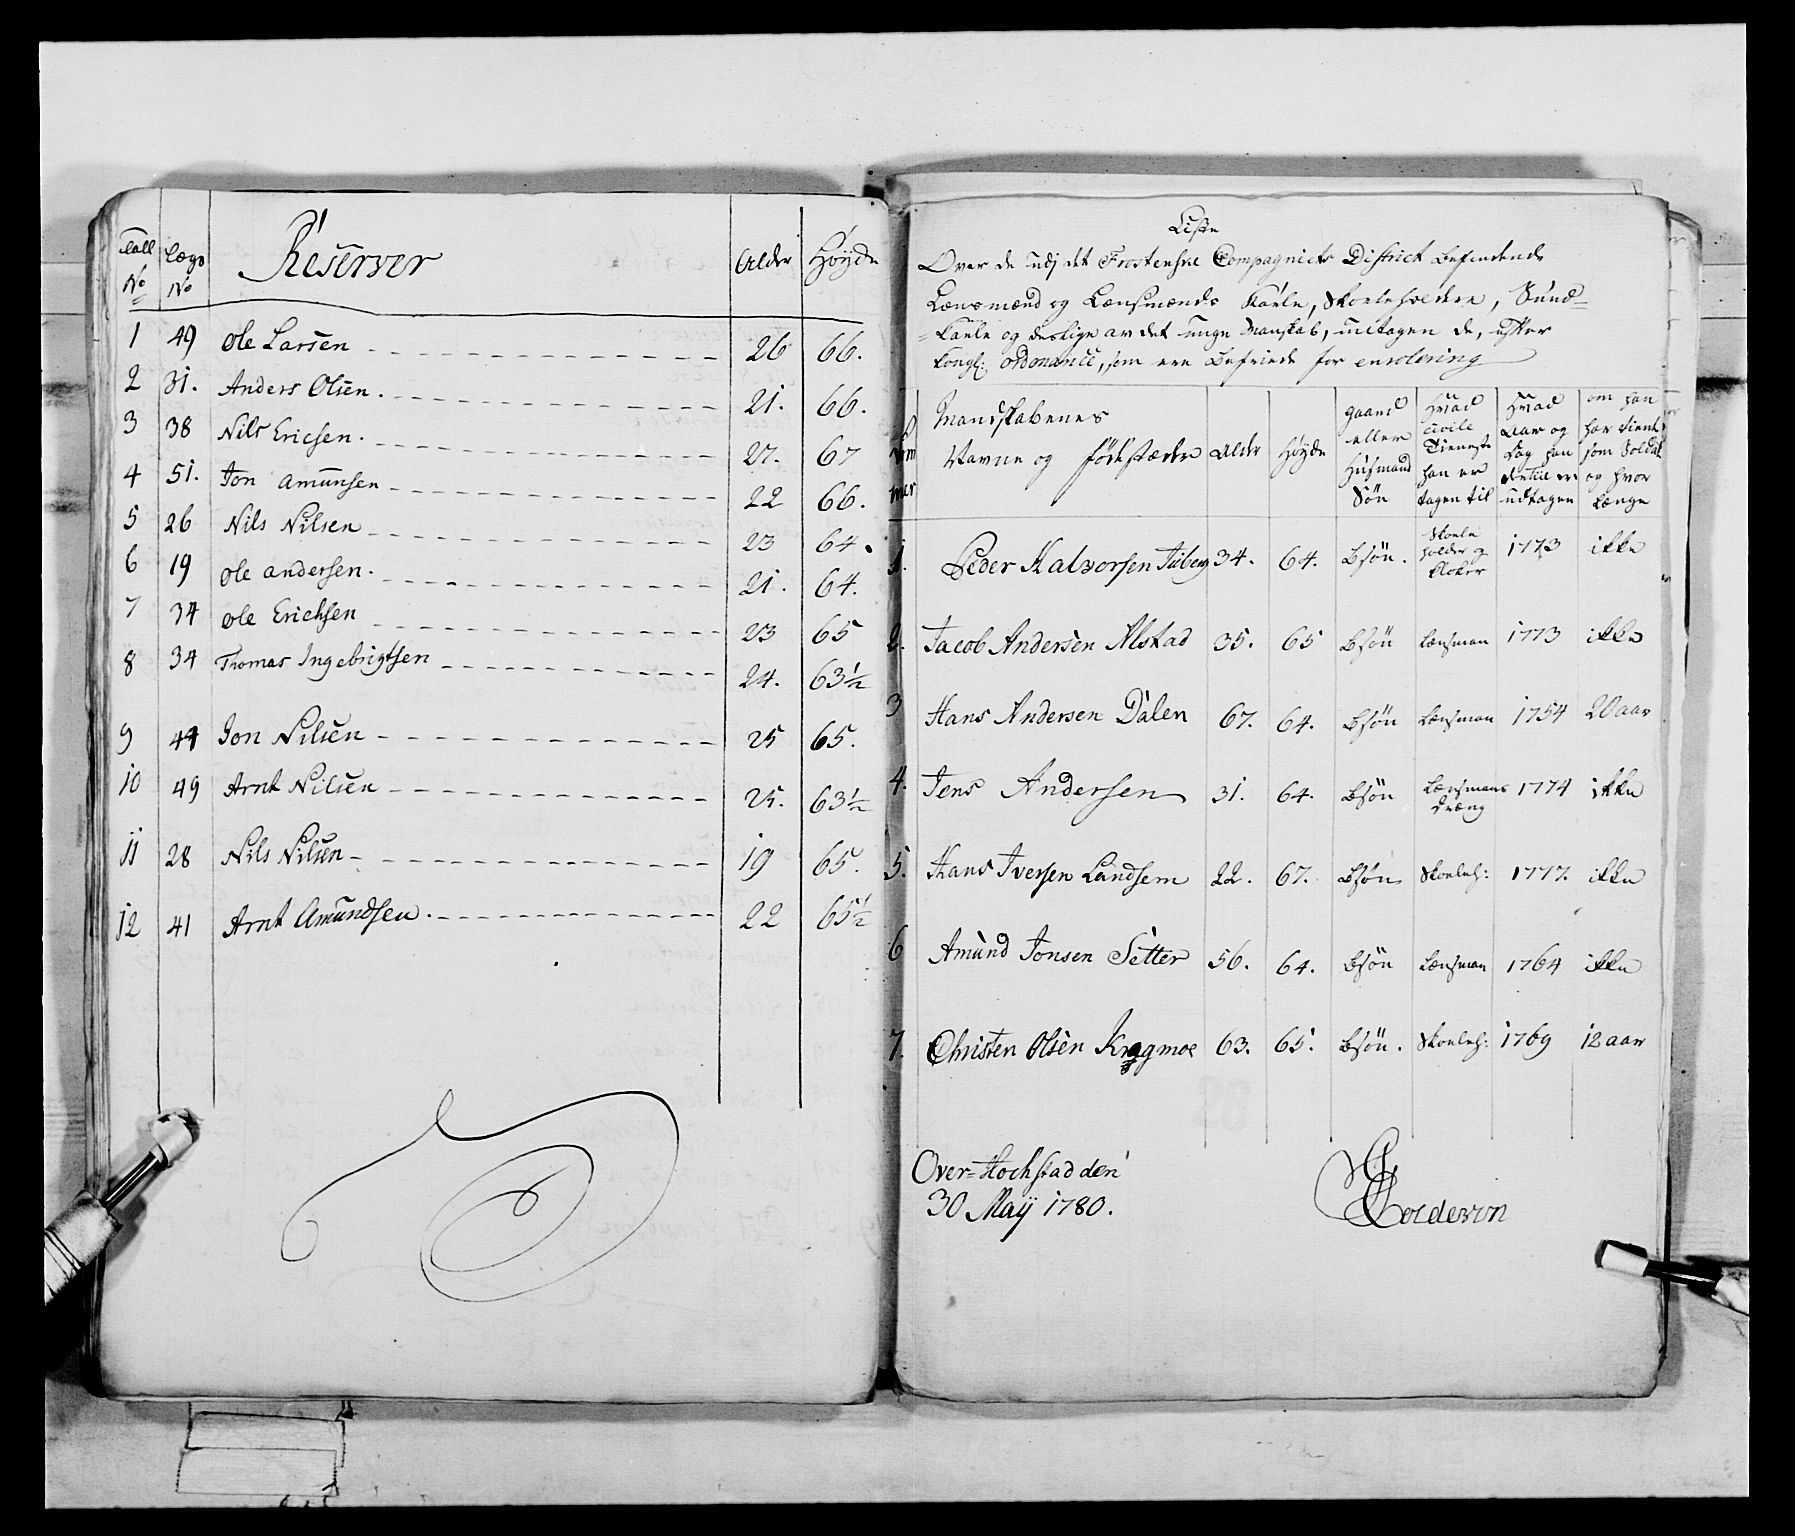 Tall No Lægs No Reserver Alder Høyde
1 49 Ole Larsen 26 66.
2 31. Anders Olsen. 21. 66.
3 38 Nils Ericsen. 27. 67
4 51. Jon Amunsen 22 66.
5 26 Nils Nilsen 23 64.
6 19 Ole Andersen. 21. 64.
7 34 Ole Erichsen 23 65
8 34 Thomas Ingebrigtsen 24. 63½
9 44 Jon Nilsen 25 65.
10 49 Arnt Nilsen 25. 63½
11 28 Nils Nilsen 19 65.
12 41 Arnt Amundsen. 22 65½
Liste
Over de udj det Frostenske Compagniets District befindende
Lænsmænd og Lænsmænds Karle, Skoleholdere, Sund=
=Karle og deslige av det unge Manskab, untagen de, efter
Kongl: ordonance, som ere befriede for enrolering
Num
mer
Mandskabenes
Navne og fødestæder
Alder
Høyde
gaard
eller
Husmand
Søn
Hvad
civile
Tieneste
han er
tagen til
Hvad
Aar og
Dag han
dertil er
udtagen
om han
har tient
som Soldat
og hvor
længe
1. Peder Halvorsen 34. 64. Bsøn. Skole holder og Kloker 1773 ikke
2. Jacob Andersen Alstad 35. 65 Bsøn Lænsman 1773 ikke
3 Hans Andersen Dalen 67. 64. Bsøn Lænsman 1754 20 aar
4. Jens Andersen 31. 64. Bsøn Lænsmans Dræng 1774 ikke
5. Hans Iversen Landsem 22. 67. Bsøn Skoleh: 1777. ikke
6 Amund Jonsen Setter 56. 64. Bsøn Lænsman 1764 ikke
7. Christen Olsen Kragmoe 63. 65. Bsøn. Skoleh: 1769 12 aar
Over=Hochstad den
30 Maij 1780.
Coldevin